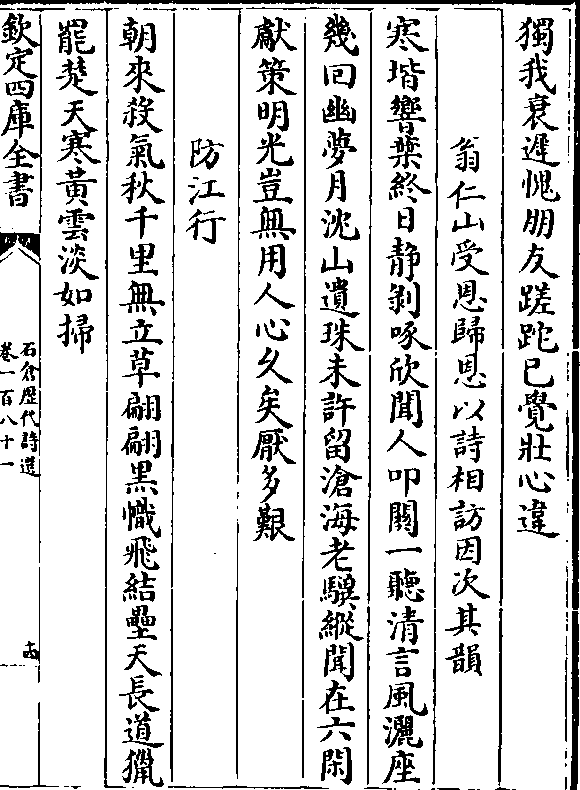 獨我衰遲愧朋友蹉跎已覺壯心違
翁仁山受恩歸恩以詩相訪因次其韻
寒堦響葉終日静剝啄欣聞人叩關一聽清言風灑座
幾回幽夢月沈山遺珠未許留滄海老驥縱聞在六閑
獻策明光豈無用人心久矣厭多艱
防江行
朝來殺氣秋千里無立草翩翩黑幟飛結壘天長道獵
罷楚天寒黄雲淡如掃
欽定四庫全書
石倉歷代詩選
卷一百八十一